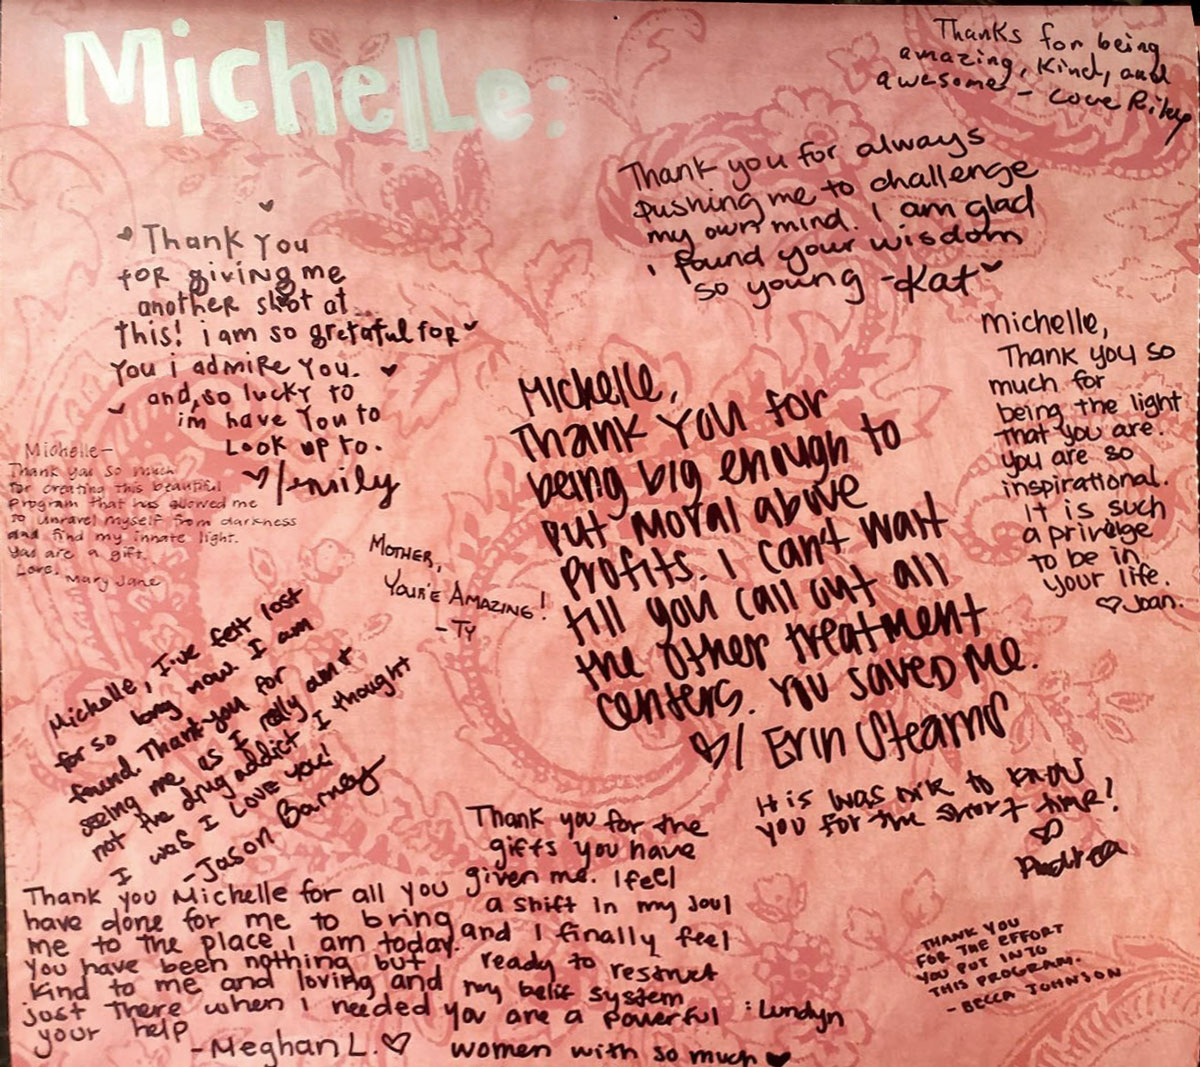 Michelle:
Thanks for being
amazing, kind, and
awesome - Love Riley
Thank you for always
pushing me to challenge
my own mind. I am glad
I found your wisdom
so young - Kat
Thank You
for giving me
another shot at
this! i am so gretaful for
you i admire you.
and, so lucky to
im have you to
Look up to.
/emily
Michelle,
Thank you so
much for
being the light
that you are.
you are so
inspirational.
It is such
a privelge
to be in
your life.
Joan.
Michelle,
Thank You for
being big enough to
put moral above
profits. I can't wait
till you call out all
the other treatment
centers. You saved me.
/ Erin Stearns
Michelle-
Thank you so much
for creating this beautiful
Program that has allowed me
to unravel myself from darkness
and find my innate light.
You are a gift.
Love, Mary Jane
Mother,
You're Amazing!
- Ty
Michelle, I've felt lost
for so long now I am
found. Thank you for
seeing me as I really am &
not the drug addict I thought
I was I Love you!
- Jason Barney
It is was nice to know
you for the short time!
Thank you for the
gifts you have
given me. I feel
a shift in my soul
and I finally feel
ready to
my belif system
you are a powerful
women with so much
: Lundyn
Thank you Michelle for all you
have done for me to bring
me to the place I am today.
You have been nothing but
kind to me and loving and
just there when I needed
your help
- Meghan L.
Thank you
for the effort
you put into
this program.
- Becca Johnson